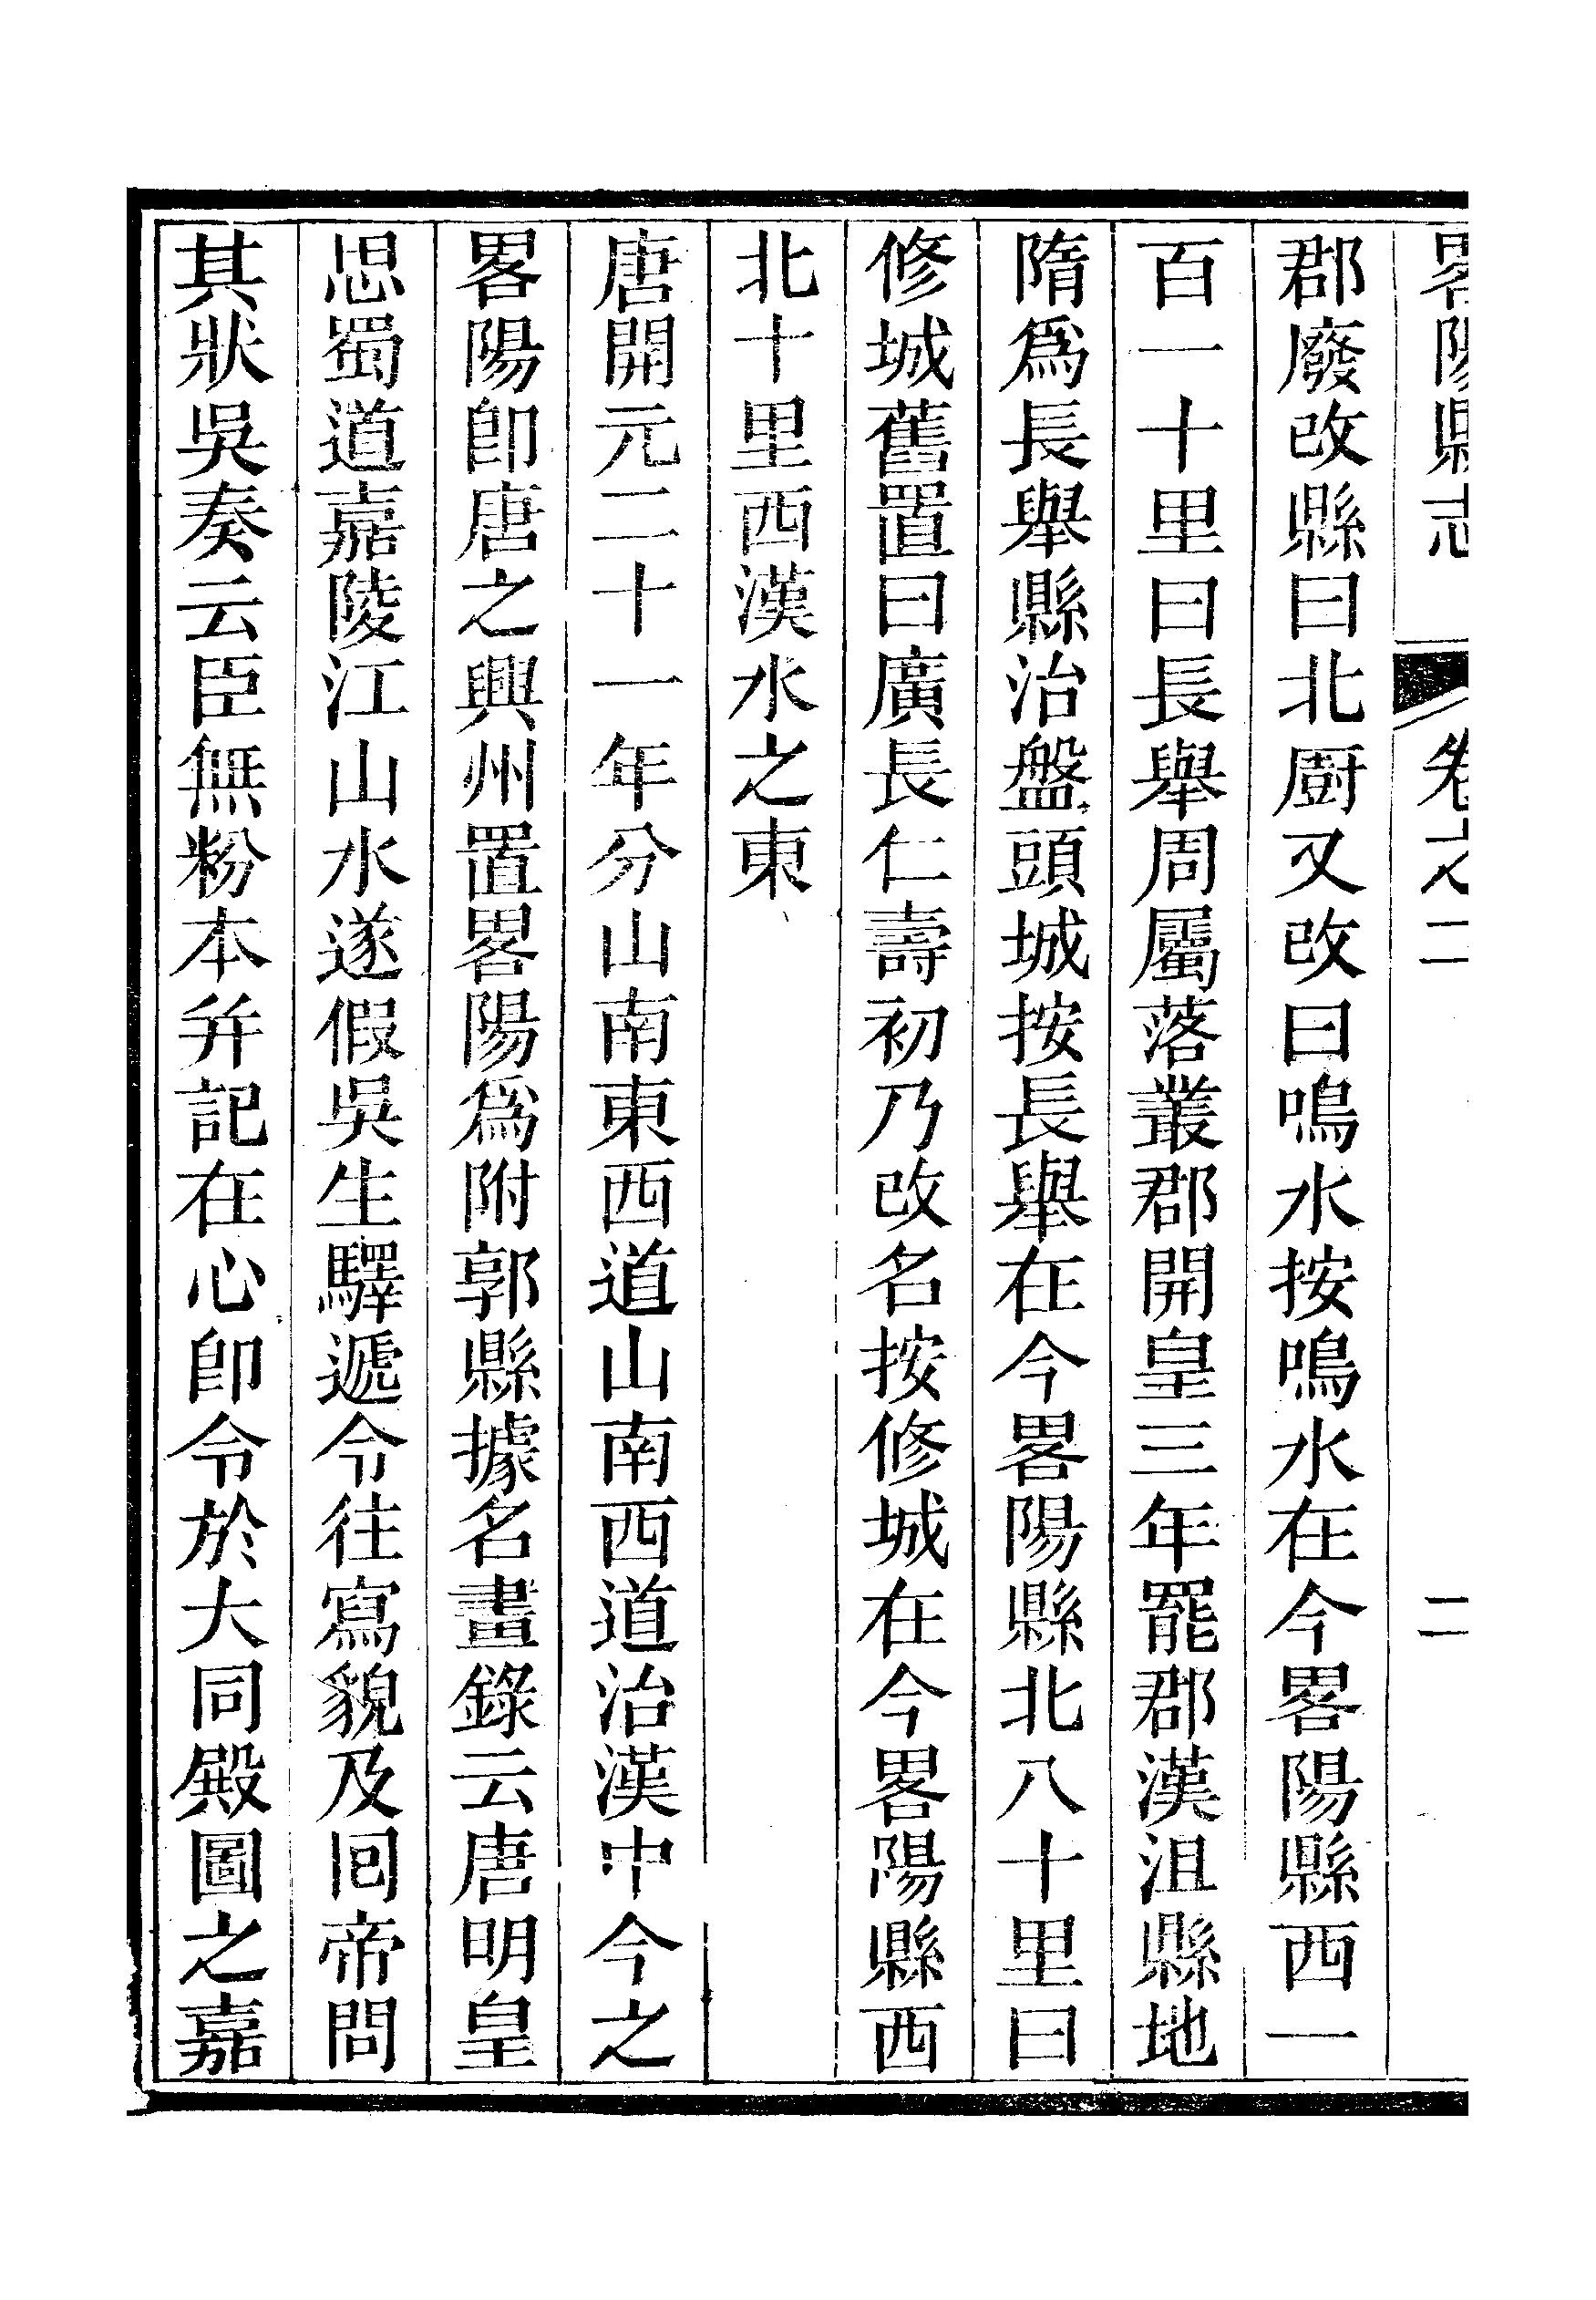 畧陽縣志 卷之二 二
郡廢改縣曰北廚又改曰鳴水按鳴水在今畧陽縣西一
百一十里曰長舉周屬落叢郡開皇三年罷郡漢沮縣地
隋爲長舉縣治盤頭城按長舉在今畧陽縣北八十里曰
修城舊置曰廣長仁壽初乃改名按修城在今畧陽縣西
北十里西漢水之東
唐開元二十一年分山南東西道山南西道治漢中今之
畧陽卽唐之興州置畧陽爲附郭縣據名畫錄云唐明皇
思蜀道嘉陵江山水遂假吳生驛遞令往寫貌及囘帝問
其狀吳奏云臣無粉本幷記在心卽令於大同殿圖之嘉